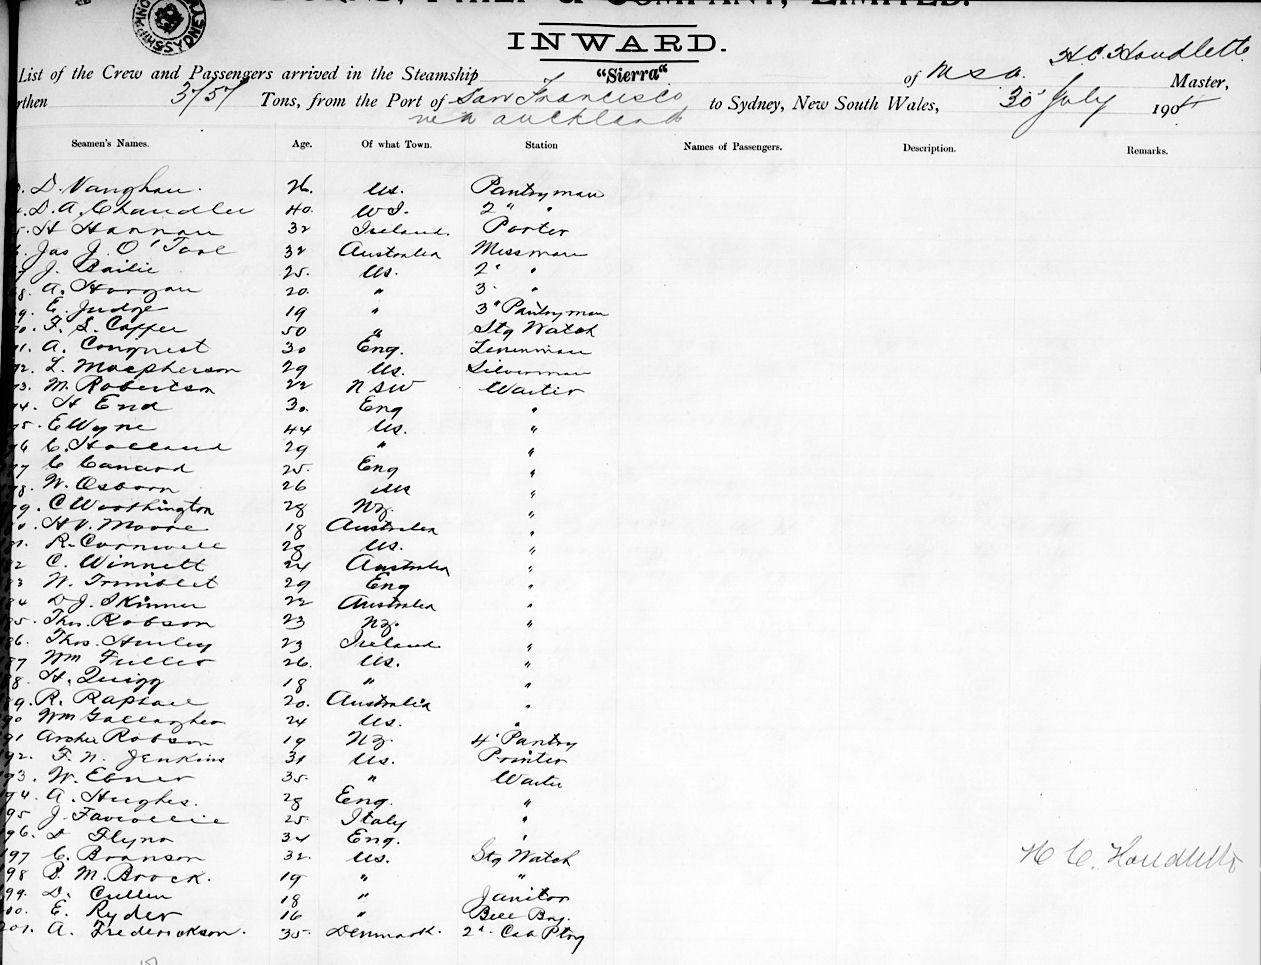 BURNS, PHILP & COMPANY, LIMITED.
INWARD.
H. C. Houdlette
List of the Crew and Passengers arrived in the Steamship "Sierra" of Master,
Tons, from the Port of San Francisco to Sydney, New South Wales, 30 July 190
via Auckland
Seamen's Names. Age. Of what Town. Station Names of Passengers. Description. Remarks.
D. Vaughan. 26. US. Pantryman
D. A. Chandler 40. W I. 2 " "
H Hannan 32 Ireland. Porter
Jas J. O'Toole 32 Australia Messman
J. Bailie 25. US. 2 "
A. Horgan 20. " 3. "
E. Judge 19 " 3" Pantryman
F. S. Capper 50 " Stg Watch
A. Conquest 30 Eng. Linenman
L. Macpherson 29 US. Silverman
73. M. Robertson 22 NSW Waiter
74. H End 30. Eng "
75. E Wyne 44 US. "
76 C. Holland 29 " "
77 C 25. Eng "
78. W. Osborn 26 US "
79. C Worthington 28 NZ. "
H V. Moore 18 Australia "
R. Cornwell 28 US. "
C. Winnett 24 Australia "
W. Trimblet 29 Eng "
D J. Skinner 22 Australia "
Thos. Robson 23 NZ. "
86. Thos. Hurley 23 Ireland "
87 Wm Fuller 26. US. "
88. H. Quigg 18 " "
89. R. Raphael 20. Australia "
90 Wm Gallagher 24 US. "
191 Archie Robson 19 NZ. 4" Pantry
192. F. N. Jenkins 31 US. Printer
193. W. Ebner 35. " Waiter
194. A. Hughes. 28 Eng. "
195 J. 25 Italy "
196. Flynn 34 Eng. "
197 C. Branson 32. US. Stg Watch H C. Houdlette
198 M. Brock. 19 " "
199. D. Cullen 18 " Janitor
200. E. Ryder 16 " Bell Boy.
201. A. Frederickson. 35. Denmark. 2". Cab Ptry